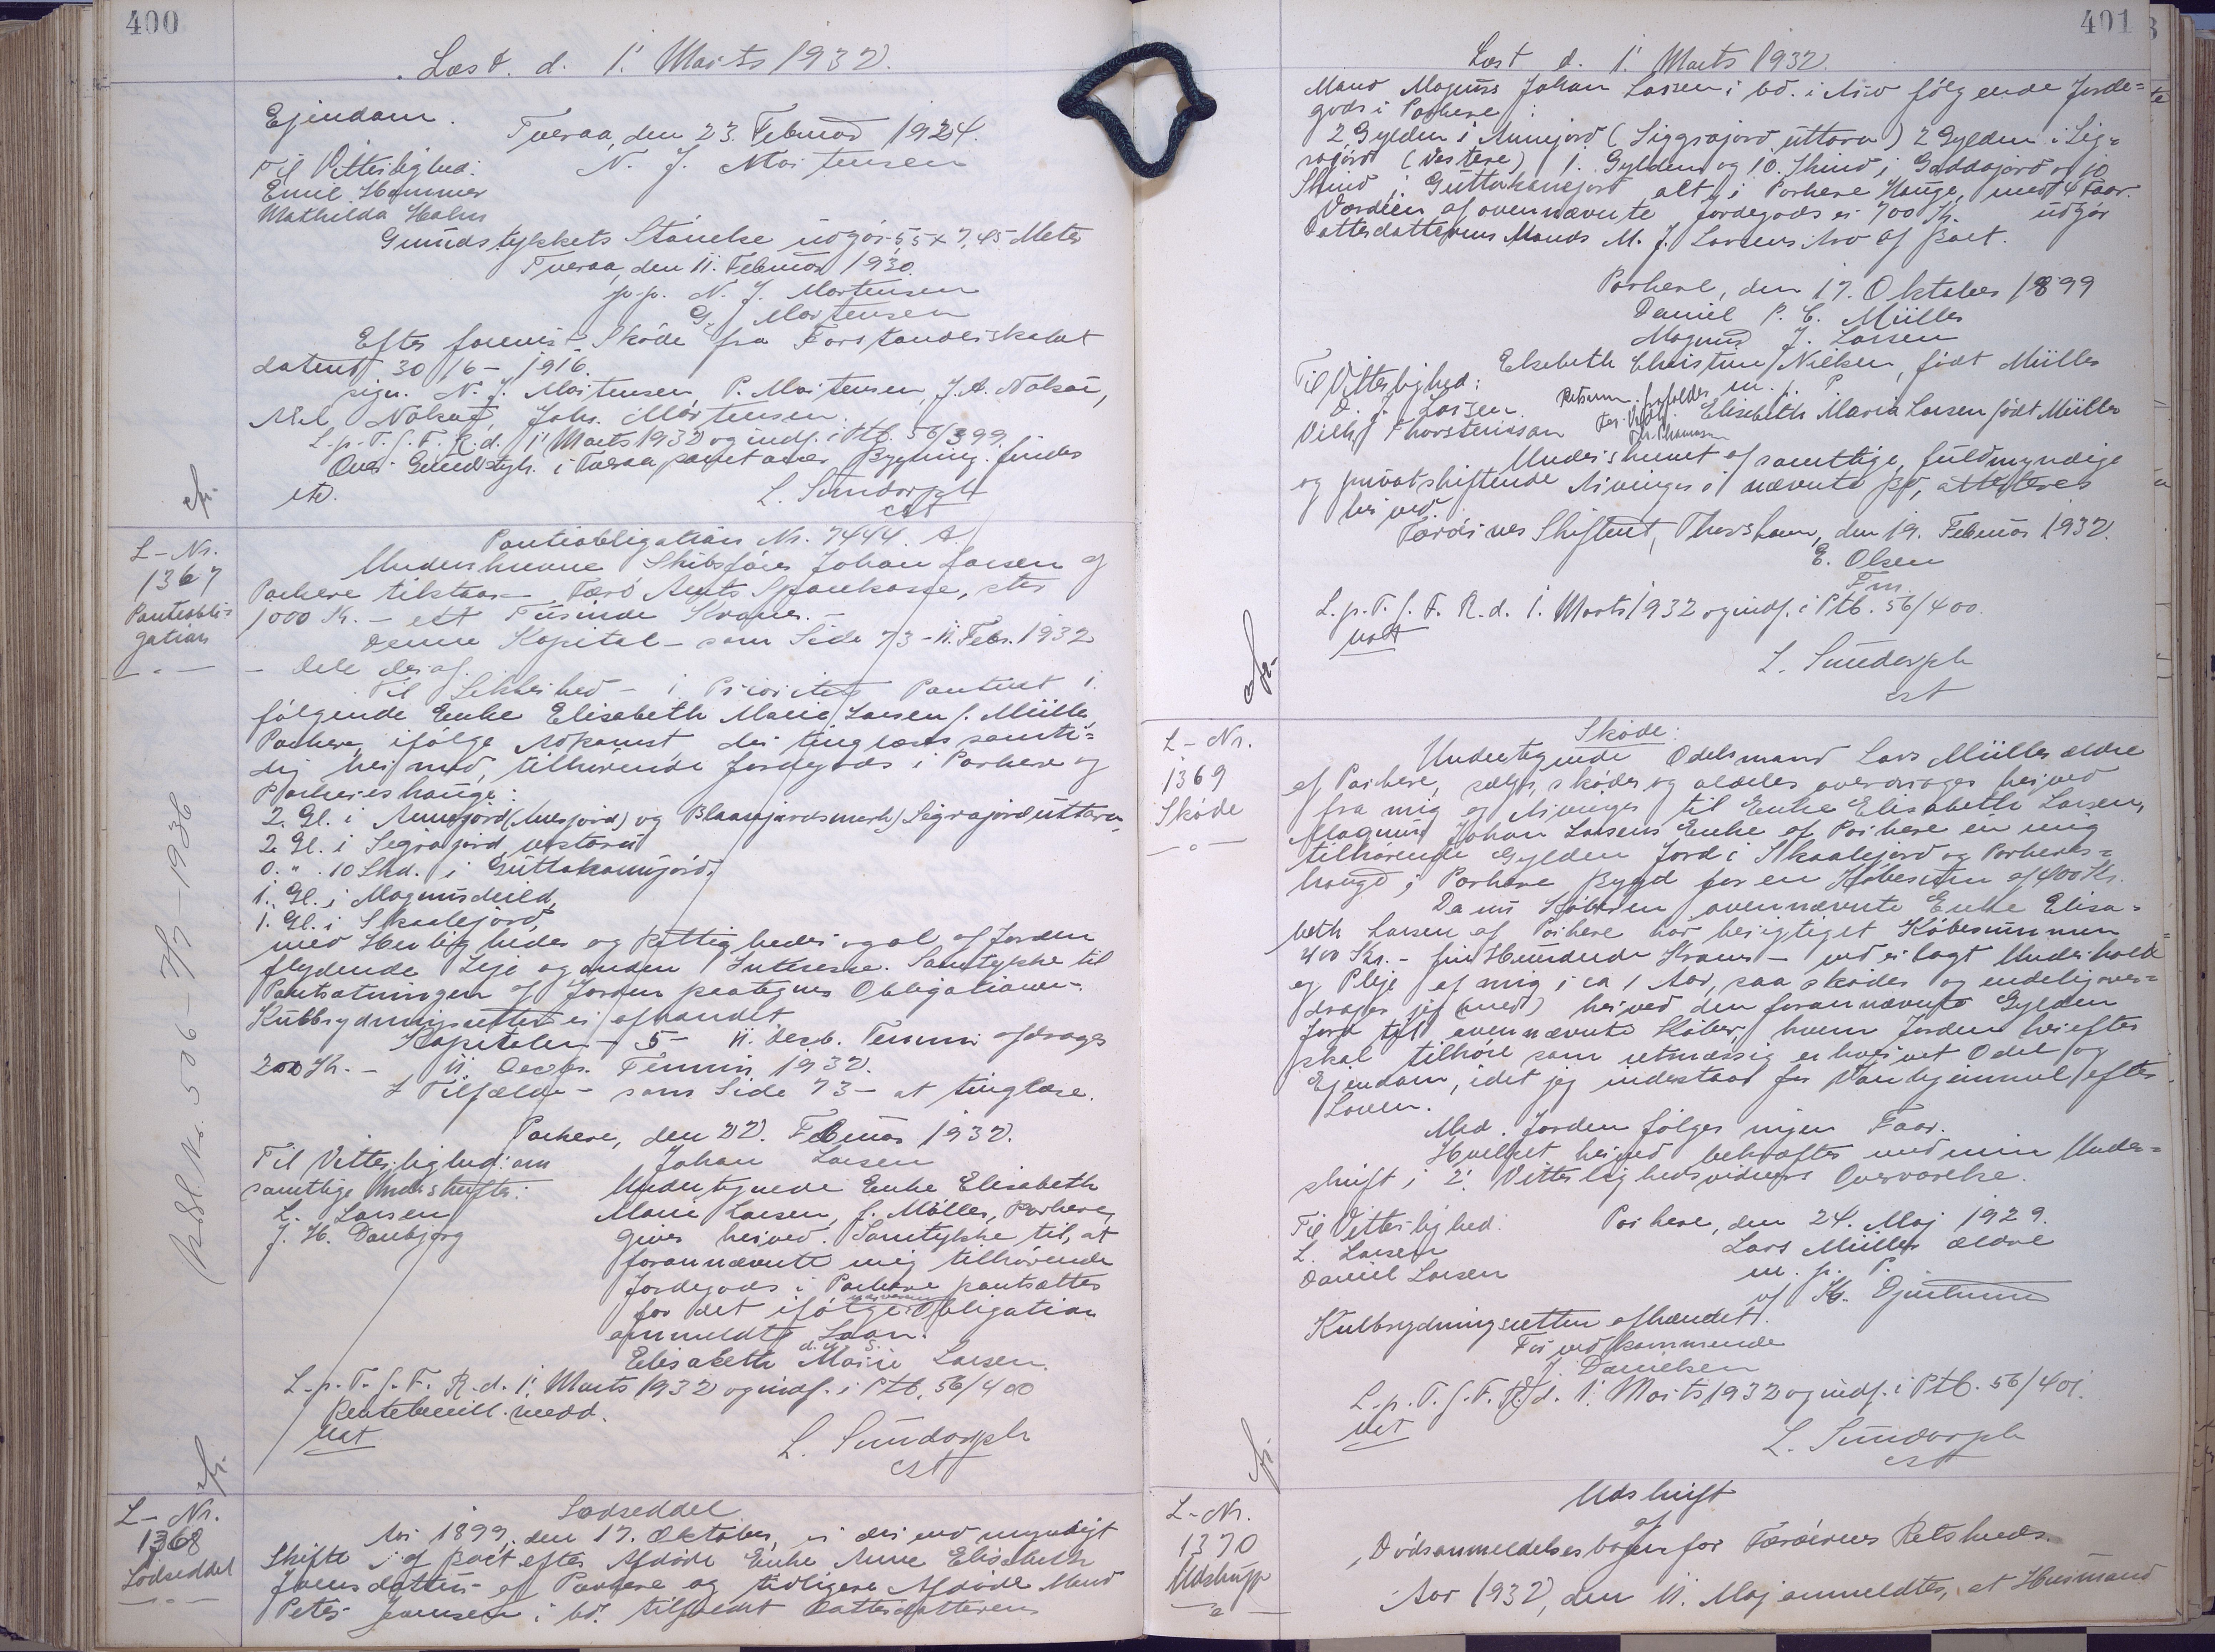 400
Læst d. 1' Marts 1932.
Ejendom.
Tveraa, den 23. Februar 1924.
Til Vitterlighed:
N. J. Mortensen
Emil Hammer
Mathilda Holm
Grundstykkets Størrelse udgør 5,5 x 7,45 Meter
Tveraa, den 11. Februar 1930.
p.p. N. J. Mortensen
G. Mortensen
Efter forevist Skøde fra Forstanderskabet
dateret 30/6 - 1916.
sign. N. J. Mortensen, P. Mortensen, J. A. Nolsøe,
Niel Nolsøe, Johs. Mortensen.
L. p. T. f. F. R. d. 1' Marts 1932 og indf. i Ptb. 56/399.
Over Grundstyk. i Tveraa paret anær Bygning findes
etc.
L. Sundorph
cst
L-Nr.
1367
Panteobli-
gation
Panteobligation Nr. 7444 A.
Underskrevne Skibsfører Johan Larsen af
Porkere tilstaar - Færø Amts Sparekasse, stor
1000 Kr. - ett Tusinde Kroner. -
Denne Kapital - som Side 73 - 11. Febr. 1932
- dele deraf.
Til Sikkerhed - 1 Prioritets Panteret i
følgende Enke Elisabeth Marie Larsen f. Müller,
Porkere, ifølge Adkomst, der tinglæses samti-
dig hermed, tilhørende Jordegods i Porkere og
Porkerishauge:
2. Gl. i Annejord (Anesjord) og Blaanjardsmerk) Sigrajord uttara,
2. Gl. i Segrajord, vestaru
0. " . 10 Skd. i Guttakamijord.
1. Gl. i Magnusdeild,
1. Gl. i Skaalejord,
med Herligheder og Rettigheder og al af Jorden
flydende Leje og anden Interesse. Samtykke til
Pantsætningen af Jorden paategnes Obligationen.
Kulbrydningsretten er afhændet
Kapitalen - 5 - 11. Decb. Termin afdrages
200 Kr. - 11 Decbr. Termin 1932.
I Tilfælde - som Side 73 - at tinglæse.
Porkere, den 22. Februar 1932.
Til Vitterlighed: om
Johan Larsen
samtlige Underskrifter:
L. Larsen
J. H. Danbjørg
Undertegnede Enke Elisabeth
Marie Larsen, f. Møller, Porkere,
giver herved Samtykke til, at
forannævnte mig tilhørende
Jordegods i Porkere pantsættes
for det ifølge nærværende Obligation
ommeldte Laan.
d. u. s.
Elisabeth Marie Larsen.
L. p. T. f. F. R. d. 1' Marts 1932 og indf. i Ptb. 56/400
Rentebevill. medd.
Uat
L. Sundorph
cst
L-Nr.
1368
Lodseddel
Lodseddel
Aar 1899, den 17. Oktober, er der ved myndigt
Skifte af Boet efter Afdøde Enke Anne Elisabeth
Joensdatter af Porkere og tidligere Afdøde Mand
Peter Joensen i bd. tilfaldt Datterdatterens
401
Læst d. 1' Marts 1932.
Mand Magnus Johan Larsen i bd. i Arv følgende Jorde-
gods i Porkere:
2 Gylden i Annejord (Siggrajord uttara) 2 Gylden i Sig-
rajord (Vestere) 1. Gylden og 10. Skind i Gaddajord og 10
Skind i Guttakamejord alt i Porkere Hauge, med 4 Faar.
Værdien af ovennævnte Jordegods er 700 Kr. udgør
Datterdatterens Mands M. J. Larsens Arv af Boet.
Porkere, den 17. Oktober 1899
Daniel P. C. Müller
Magnus J. Larsen
Til Vitterlighed:
Elsebeth Christine Nielsen, født Müller
m. f. P.
D. J. Larsen.
Vilh. Thorsteinsson
Elisabeth Maria Larsen født Müller
Underskrevet af samtlige, fuldmyndige
og privatskiftende Arvinger i nævnte Bo, attesteres
herved.
Færøernes Skifteret, Thorshavn, den 19. Februar 1932.
E. Olsen
Fm.
L. p. T. f. F. R. d. 1. Marts 1932 og indf. i Ptb. 56/400.
Uat
L. Sundorph
cst
L-Nr.
1369
Skøde
Skøde:
Undertegnede Odelsmand Lars Müller ældre
af Porkere, sælger, skøder og aldeles overdrager herved
fra mig og Arvinger til Enke Elisabeth Larsen,
Magnus Johan Larsens Enke af Porkere en mig
tilhørende Gylden Jord i Skaalejord og Porkeres-
hauge i Porkere Bygd for en Købesum af 400 Kr.
Da nu Køberen ovennævnte Enke Elisa-
beth Larsen af Porkere har berigtiget Købesummen
400 Kr. - fire Hundrede Kroner - ved erlagt Underhold
og Pleje af mig i ca 1 Aar, saa skøder og endelig over-
drager jeg (med) herved den forannævnte Gylden
Jord til ovennævnte Køber, hvem Jorden herefter
skal tilhøre som retmæssig erhvervet Odel og
Ejendom, idet jeg indestaar for Vanhjemmel efter
Loven.
Med Jorden følger ingen Faar.
Hvilket herved bekræftes med min Under-
skrift i 2 Vitterlighedsvidners Overværelse.
Til Vitterlighed:
Porkere, den 24. Maj 1929.
L. Larsen
Lars Müller ældre
Daniel Larsen
m. f. P.
v/ Kr. Djurhuus
Kulbrydningsretten afhændet.
For vedkommende
J. Danielsen
L. p. T. f. F. R. d. 1' Marts 1932 og indf. i Ptb. 56/401.
Uat
L. Sundorph
cst
L-Nr.
1370
Udskrift
Udskrift
af
Dødsanmeldelsesbogen for Færøernes Retskreds.
Aar 1932, den 11. Maj anmeldtes, at Husmand